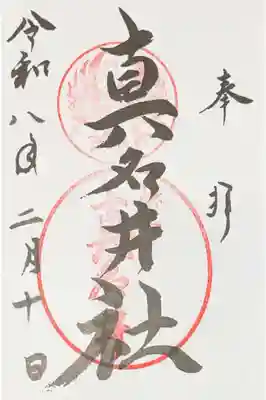 奉拝
真名井社
令和八年二月十日